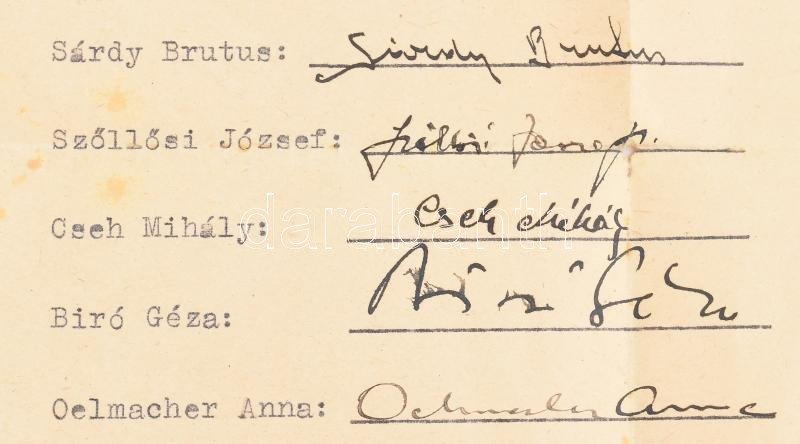 Sárdy Brutus: Sárdy Brutus
Szőllősi József: Szőllősi József
Cseh Mihály: Cseh Mihály
darabanth
Biró Géza: Biró Géza
Oelmacher Anna: Oelmacher Anna